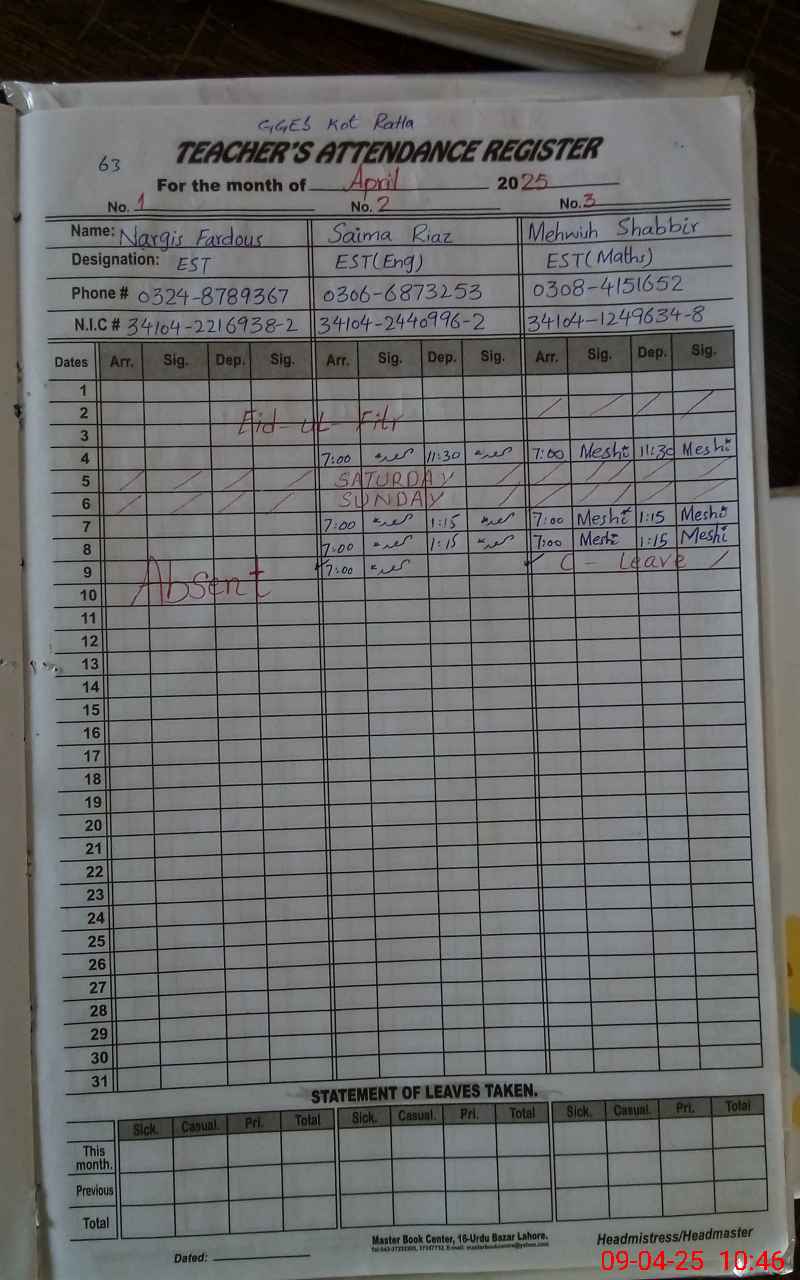 GGES Kot Ratta
63
TEACHER'S ATTENDANCE REGISTER
For the month of April 2025
No. 1 No. 2 No. 3
Name: Nargis Fardous Saima Riaz Mehwish Shabbir
Designation: EST EST(Eng) EST(Maths)
Phone # 0324-8789367 0306-6873253 0308-4151652
N.I.C # 34104-2216938-2 34104-2440996-2 34104-1249634-8
Dates Arr. Sig. Dep. Sig. Arr. Sig. Dep. Sig. Arr. Sig. Dep. Sig.
1
2
Eid-ul-Fitr
3
4 7:00 11:30 7:00 Meshi 11:30 Meshi
5 SATURDAY
6 SUNDAY
7 7:00 1:15 7:00 Meshi 1:15 Meshi
8 7:00 1:15 7:00 Meshi 1:15 Meshi
9 Absent 7:00 C - Leave
10
11
12
13
14
15
16
17
18
19
20
21
22
23
24
25
26
27
28
29
30
31
STATEMENT OF LEAVES TAKEN.
Sick. Casual. Pri. Total Sick. Casual. Pri. Total Sick. Casual. Pri. Total
This month.
Previous
Total
Master Book Center, 16-Urdu Bazar Lahore.
Dated: Headmistress/Headmaster
09-04-25 10:46